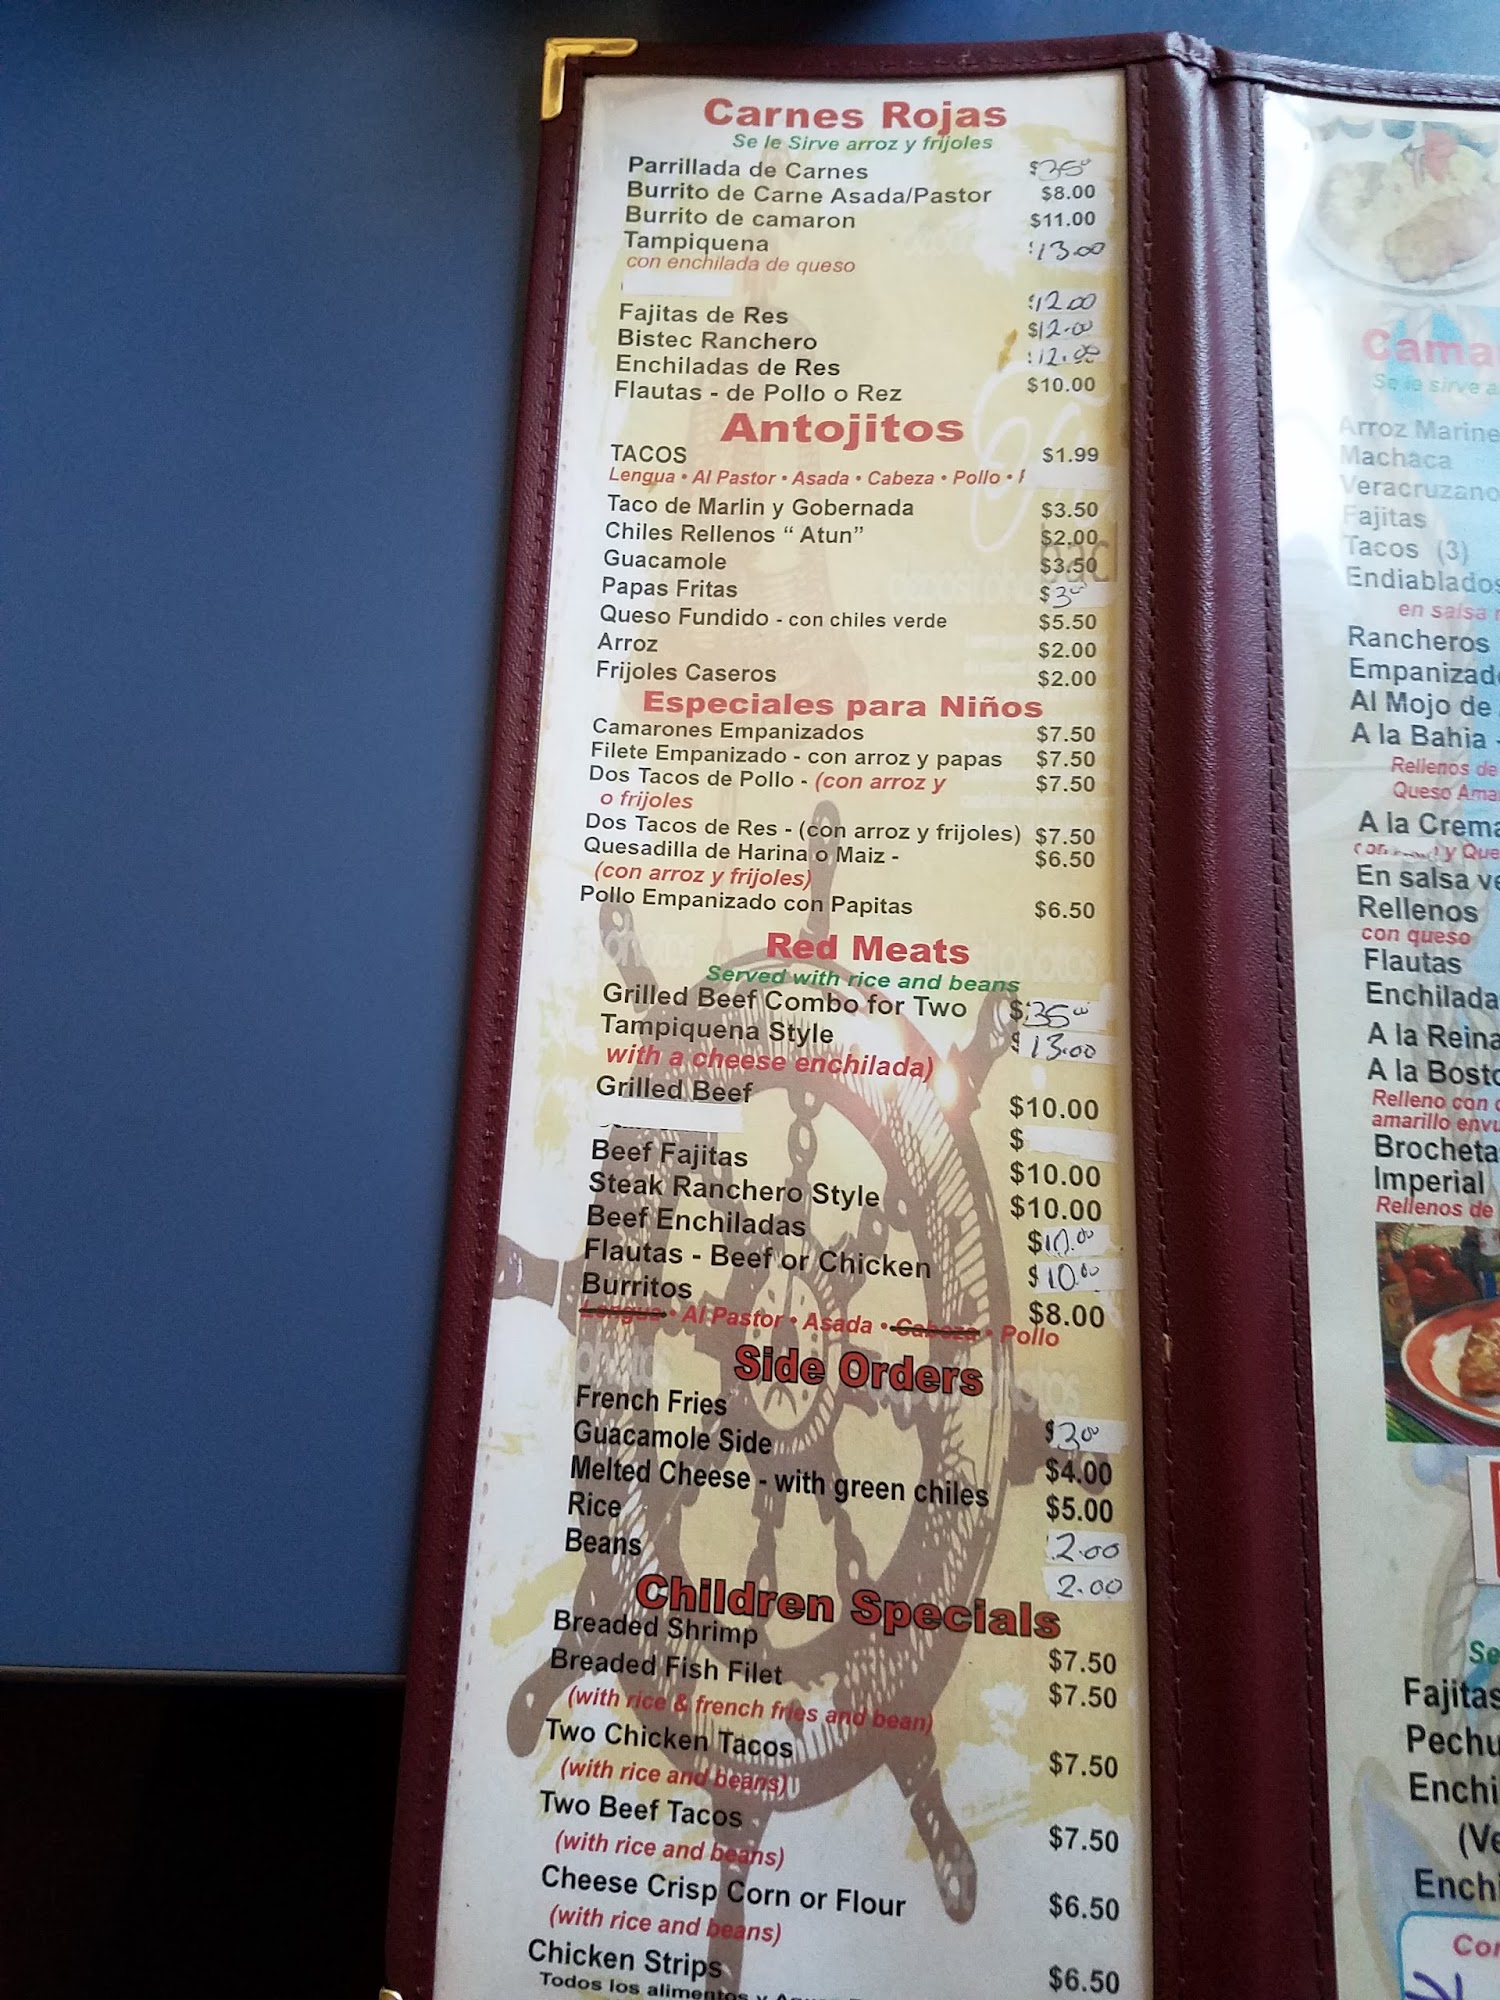 Carnes Rojas
Se le Sirve arroz y frijoles
Parrillada de Carnes $35⁰⁰
Burrito de Carne Asada/Pastor $8.00
Burrito de camaron $11.00
Tampiquena $13.00
con enchilada de queso
Fajitas de Res $12.00
Bistec Ranchero $12.00
Enchiladas de Res $12.00
Flautas - de Pollo o Rez $10.00
Antojitos
TACOS $1.99
Lengua • Al Pastor • Asada • Cabeza • Pollo •
Taco de Marlin y Gobernada $3.50
Chiles Rellenos “ Atun” $2.00
Guacamole $3.50
Papas Fritas $3⁰⁰
Queso Fundido - con chiles verde $5.50
Arroz $2.00
Frijoles Caseros $2.00
Especiales para Niños
Camarones Empanizados $7.50
Filete Empanizado - con arroz y papas $7.50
Dos Tacos de Pollo - (con arroz y $7.50
o frijoles
Dos Tacos de Res - (con arroz y frijoles) $7.50
Quesadilla de Harina o Maiz - $6.50
(con arroz y frijoles)
Pollo Empanizado con Papitas $6.50
Red Meats
Served with rice and beans
Grilled Beef Combo for Two $35⁰⁰
Tampiquena Style $13.00
with a cheese enchilada)
Grilled Beef $10.00
$
Beef Fajitas $10.00
Steak Ranchero Style $10.00
Beef Enchiladas $10.⁰⁰
Flautas - Beef or Chicken $10.⁰⁰
Burritos $8.00
Lengua • Al Pastor • Asada • Cabeza • Pollo
Side Orders
French Fries $3⁰⁰
Guacamole Side $4.00
Melted Cheese - with green chiles $5.00
Rice 2.00
Beans 2.00
Children Specials
Breaded Shrimp $7.50
Breaded Fish Filet $7.50
(with rice & french fries and bean)
Two Chicken Tacos $7.50
(with rice and beans)
Two Beef Tacos $7.50
(with rice and beans)
Cheese Crisp Corn or Flour $6.50
(with rice and beans)
Chicken Strips $6.50
Todos los alimentos y
Se le sirve a
Arroz
Machaca
Veracruzano
Fajitas
Tacos (3)
Endiablados
en salsa
Rancheros
Al Mojo de
A la Bahia
Rellenos de
Queso
A la Crema
y
En salsa
Rellenos
con queso
Flautas
A la Reina
A la
Relleno con
amarillo
Imperial
Rellenos de
Fajitas